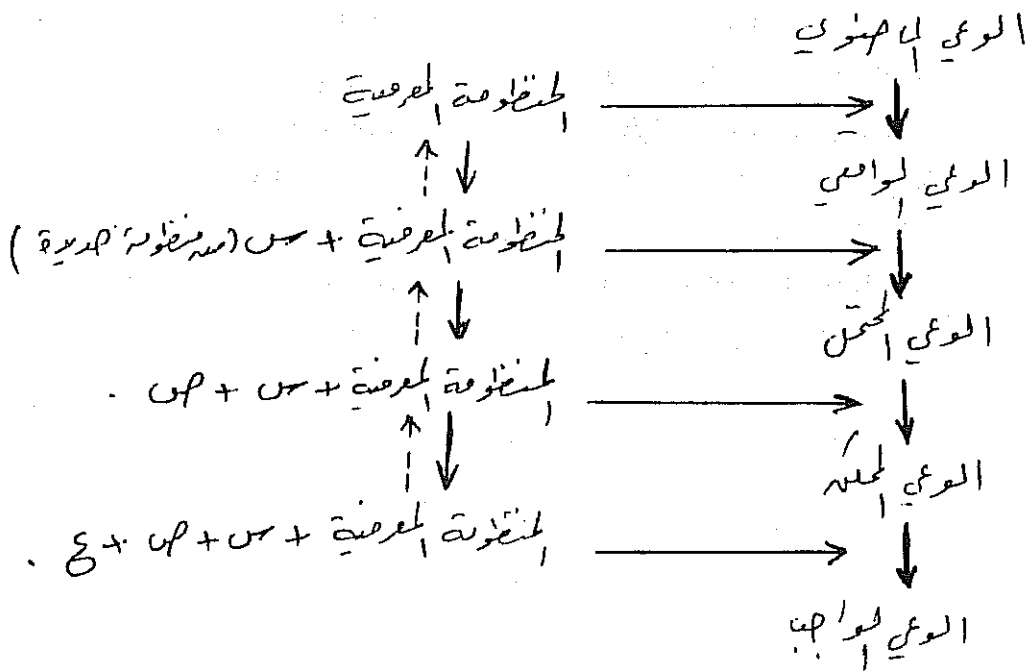 الوعي الماضوي
المنظومة المعرفية
الوعي الواقعي
المنظومة المعرفية + س (من منظومة جديدة)
الوعي المحتمل
المنظومة المعرفية + س + ص .
الوعي الممكن
المنظومة المعرفية + س + ص + ع .
الوعي الواجب